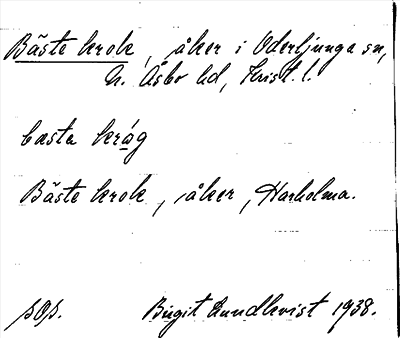 Bäste krok, åker i Oderljunga sn,
N. Åsbo hd, Krist. l.
bæsta kråg
Bäste krok, åker, Harholma.
Birgit Lundkvist 1938.